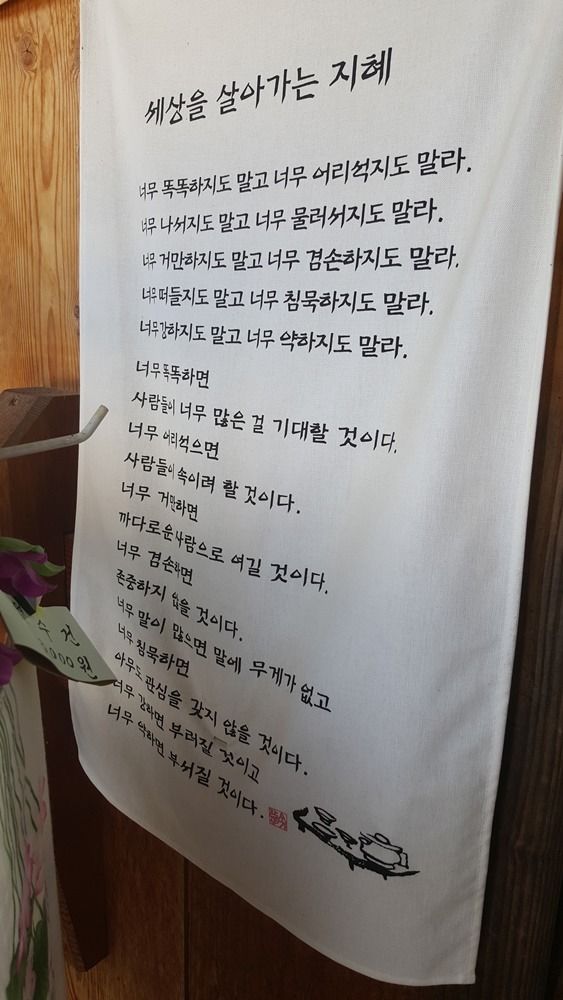 세상을 살아가는 지혜
너무 똑똑하지도 말고 너무 어리석지도 말라.
너무 나서지도 말고 너무 물러서지도 말라.
너무 거만하지도 말고 너무 겸손하지도 말라.
너무 떠들지도 말고 너무 침묵하지도 말라.
너무 강하지도 말고 너무 약하지도 말라.
너무 똑똑하면
사람들이 너무 많은 걸 기대할 것이다.
너무 어리석으면
사람들이 속이려 할 것이다.
너무 거만하면
까다로운 사람으로 여길 것이다.
너무 겸손하면
존중하지 않을 것이다.
너무 말이 많으면 말에 무게가 없고
너무 침묵하면
아무도 관심을 갖지 않을 것이다.
너무 강하면 부러질 것이고
너무 약하면 부서질 것이다.
수건
000원